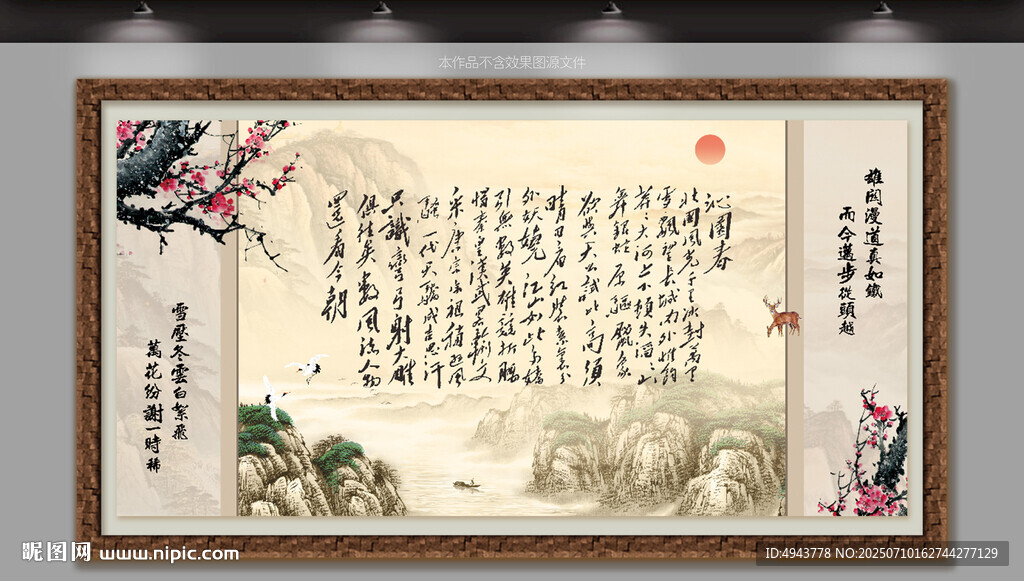 本作品不含效果图源文件
雄関漫道真如鐵
而今邁步從頭越
沁園春
北國風光千里冰封萬里
雪飄望長城內外惟餘
莽々大河上下頓失滔々山
舞銀蛇原驅蠟象
欲與天公試比高須
晴日看紅裝素裹分
外妖嬈江山如此多嬌
引無數英雄競折腰
惜秦皇漢武略輸文
采唐宗宋祖稍遜風
騷一代天驕成吉思汗
只識彎弓射大雕
俱往矣數風流人物
還看今朝
雪壓冬雲白絮飛
萬花紛謝一時稀
昵图网 www.nipic.com
ID:4943778 NO:20250710162744277129